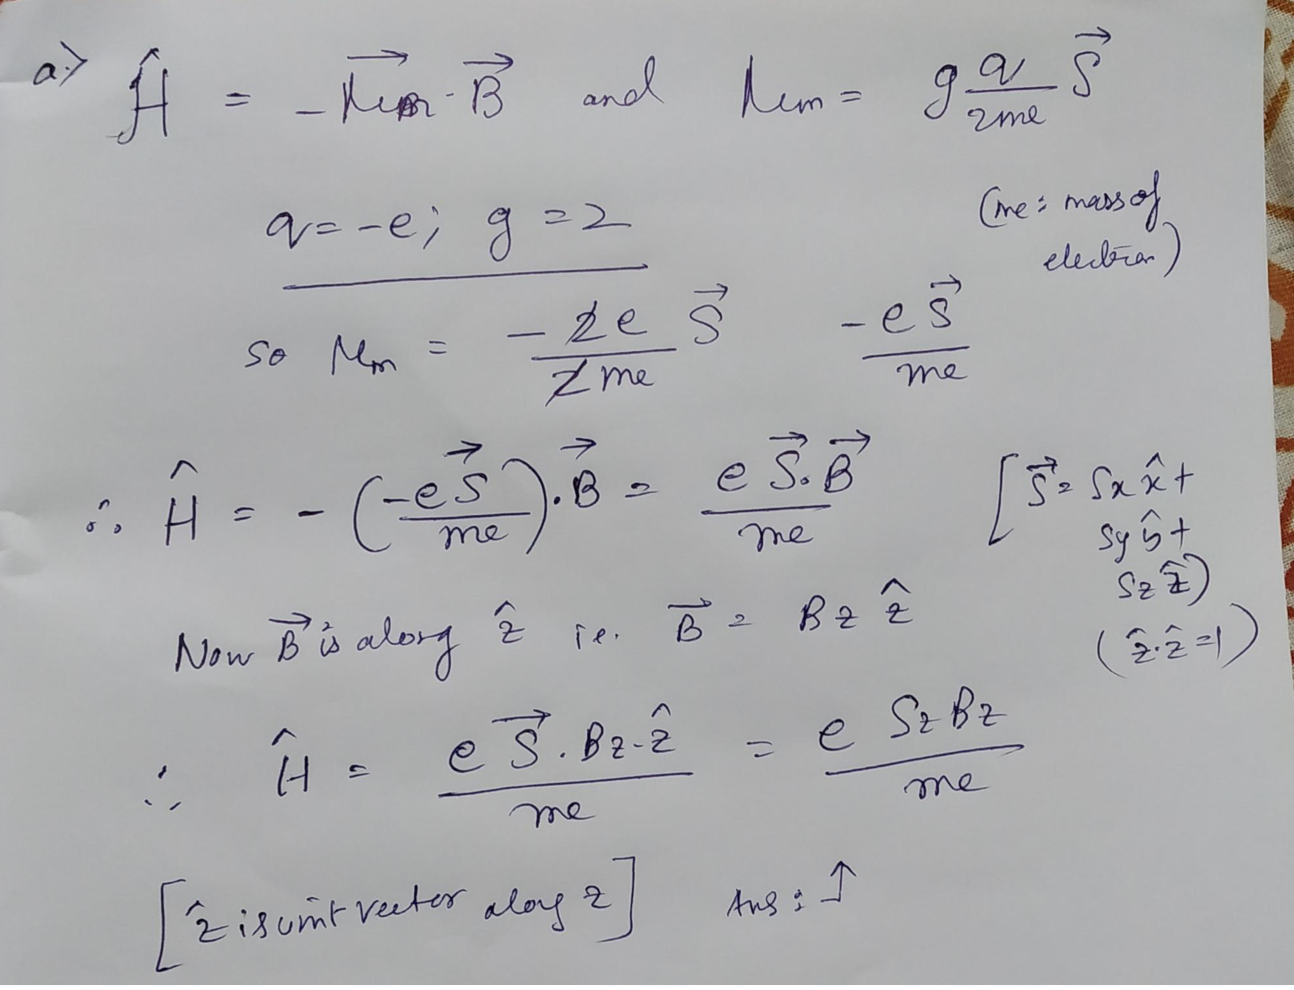 a.> Ĥ = -μ⃗m·B⃗ and μm = g q/2me S⃗
q=-e; g=2
(me: mass of
electron)
so μm = -2e/2me S⃗ -eS⃗/me
∴ Ĥ = -(-eS⃗/me)·B⃗ = eS⃗·B⃗/me [S⃗= Sx x̂+
Sy ŷ+
Sz ẑ)
(ẑ·ẑ=1)
Now B⃗ is along ẑ ie. B⃗ = Bz ẑ
∴ Ĥ = e S⃗·Bz·ẑ/me = e Sz Bz/me
[ẑ is unit vector along z] Ans: ↑